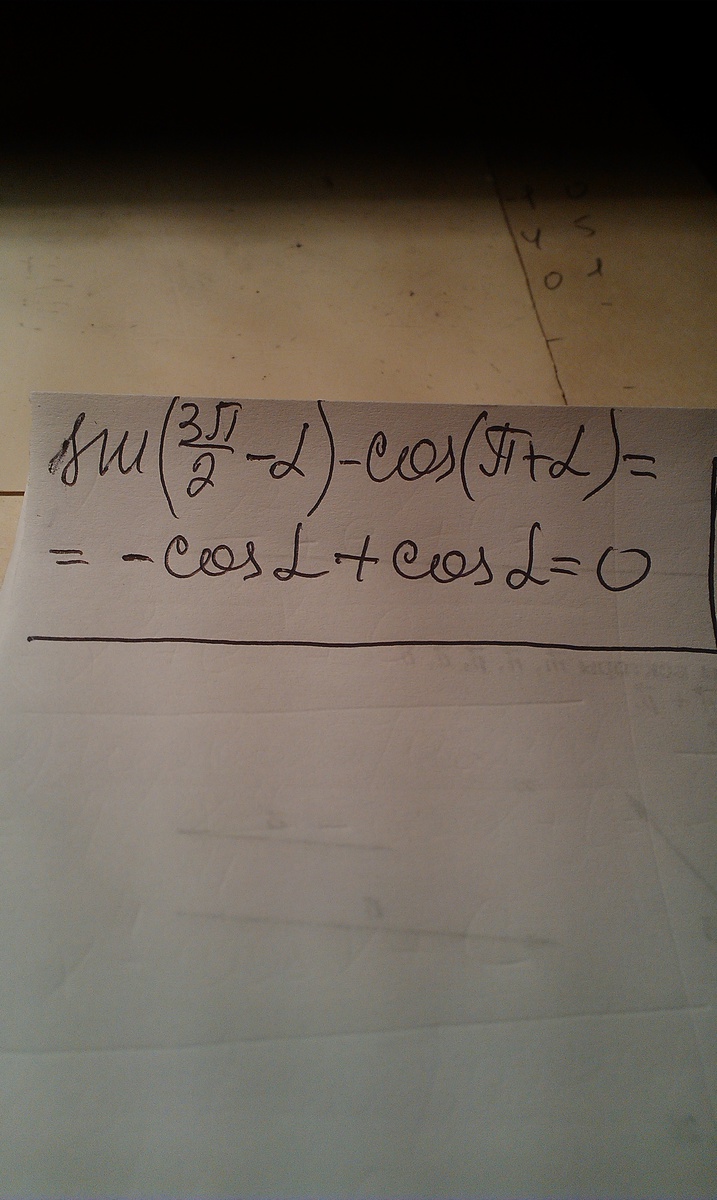 sin(3π/2 - α) - cos(π + α) =
= - cos α + cos α = 0